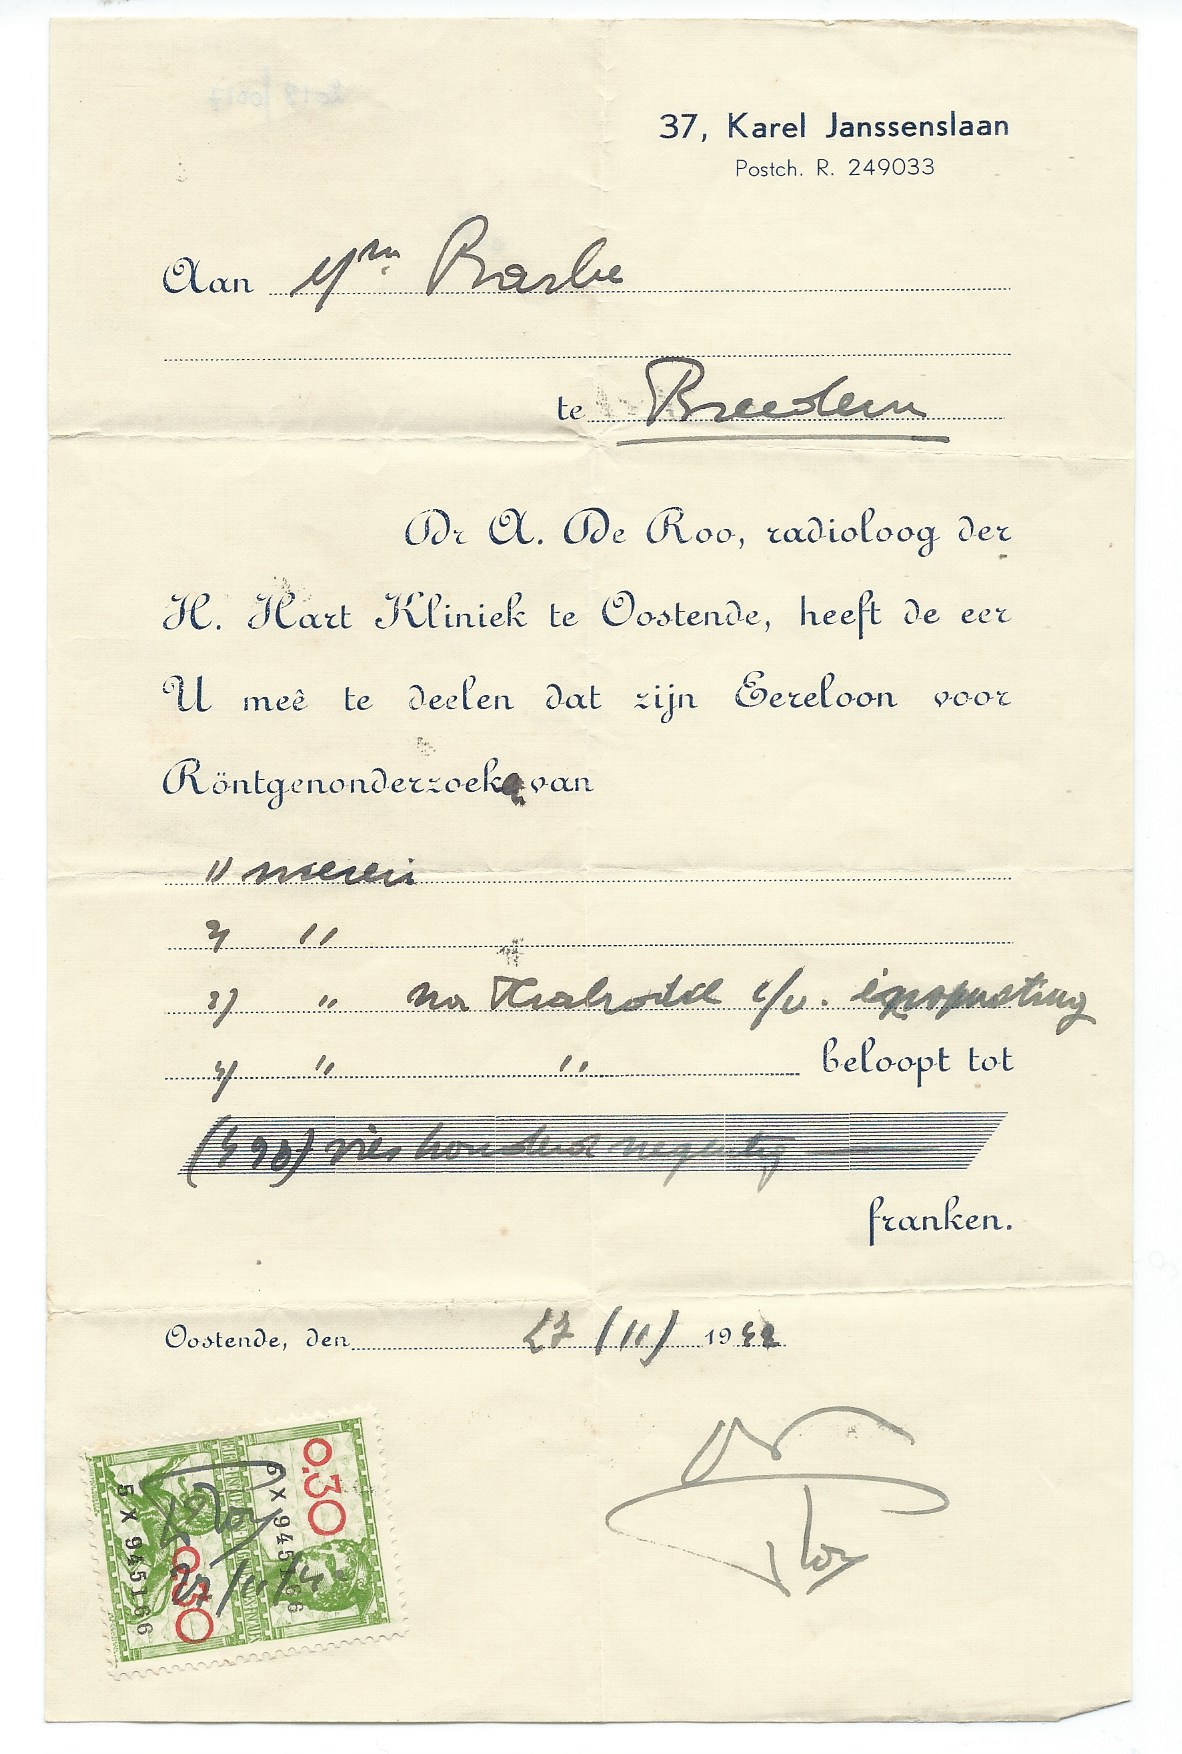 37, Karel Janssenslaan
Postch. R. 249033
Aan Mr Barbe
te Breedene
Dr A. De Roo, radioloog der
H. Hart Kliniek te Oostende, heeft de eer
U meê te deelen dat zijn Eereloon voor
Röntgenonderzoek van
1) nieren
2) "
3) " na i/v. inspuiting
4) " " beloopt tot
(490) vier honderd negentig
franken.
Oostende, den 27/11/ 1942
0.30
5 X 945166
0.30
5 X 945166
27/11/42